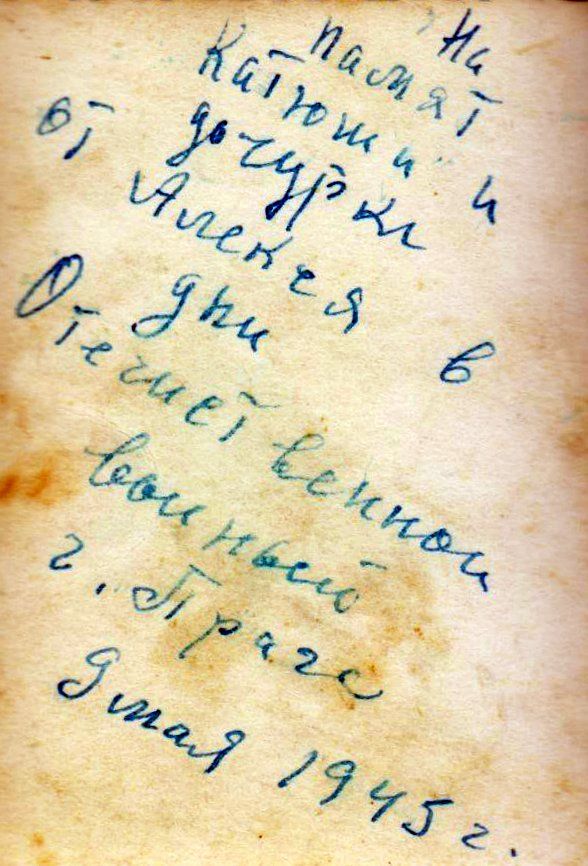 На
памят
Катюши и
дочурки
от Алексея в
дни
Отечиственной
войный
г. Праге
9 мая 1945 г.